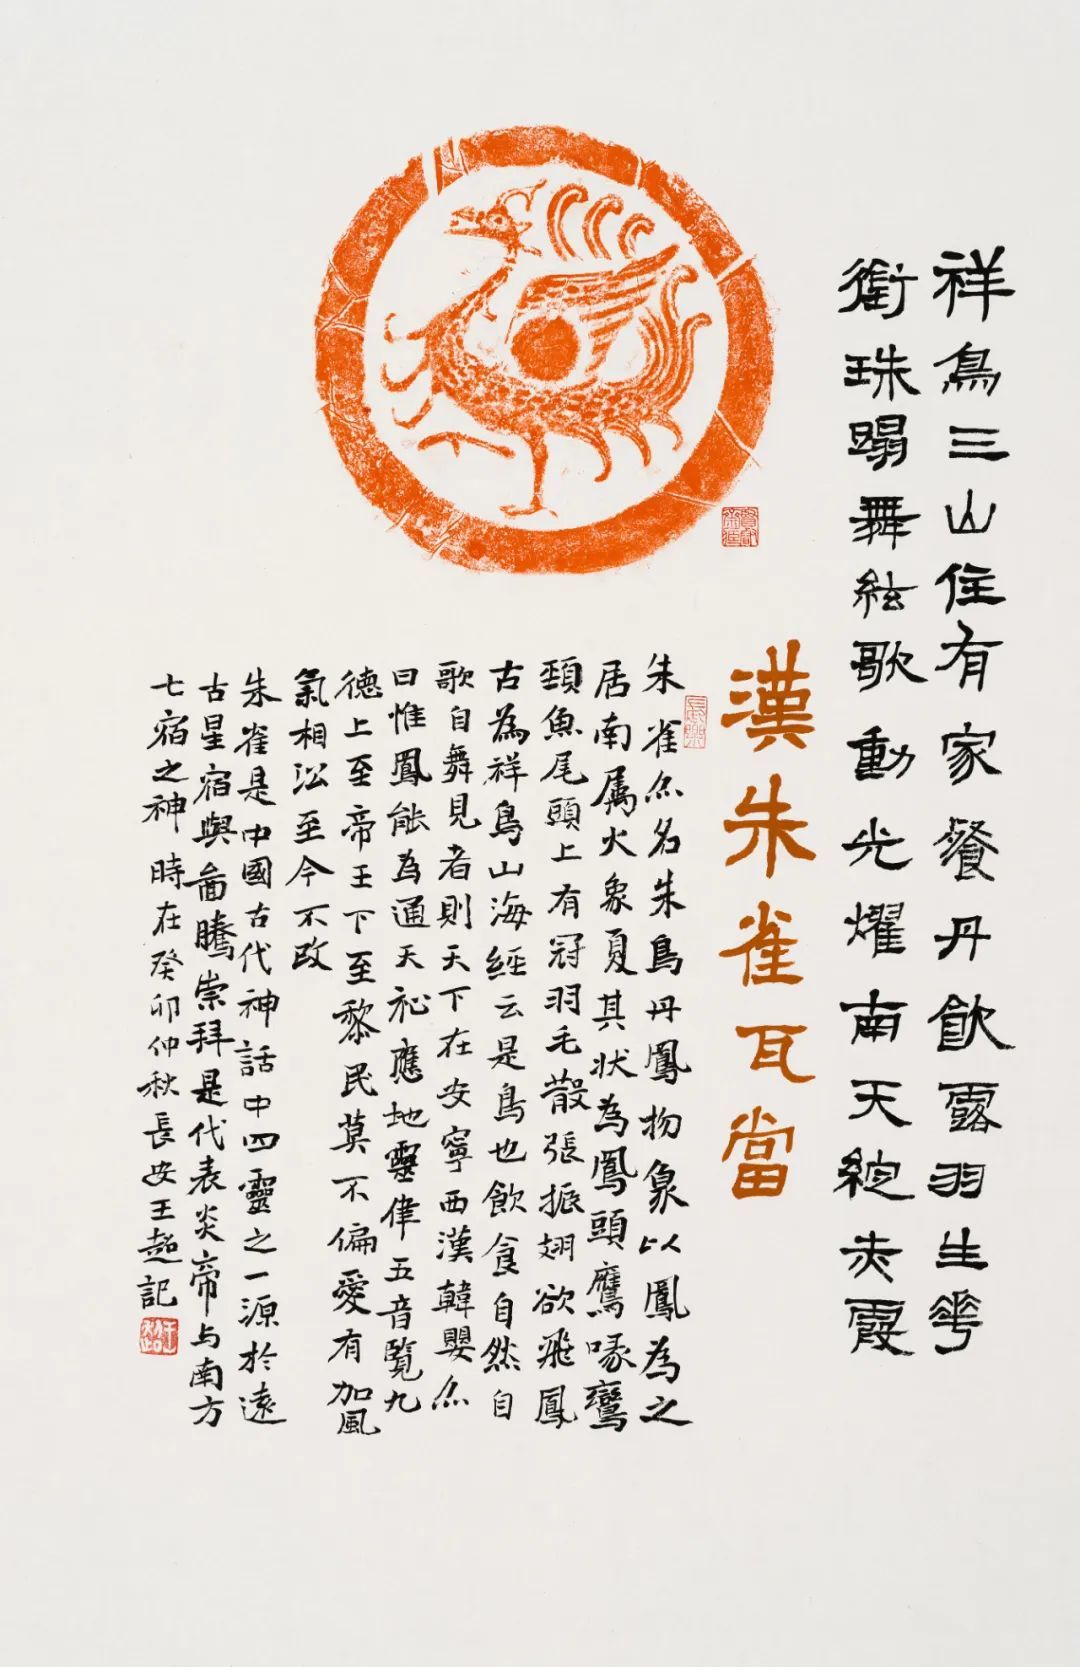 祥鳥三山住有家餐丹飲露羽生華
銜珠蹋舞絃歌動光燿南天綻赤霞
漢朱雀瓦當
朱雀亦名朱鳥丹鳳物象以鳳為之
居南属火象夏其狀為鳳頭鷹喙鸞
頸魚尾頭上有冠羽毛散張振翅欲飛鳳
古為祥鳥山海經云是鳥也飲食自然自
歌自舞見者則天下在安寧西漢韓嬰亦
曰惟鳳能為通天祉應地靈律五音覽九
德上至帝王下至黎民莫不偏愛有加風
氣相沿至今不改
朱雀是中國古代神話中四靈之一源於遠
古星宿與啚騰崇拜是代表炎帝与南方
七宿之神 時在癸卯仲秋長安王超記